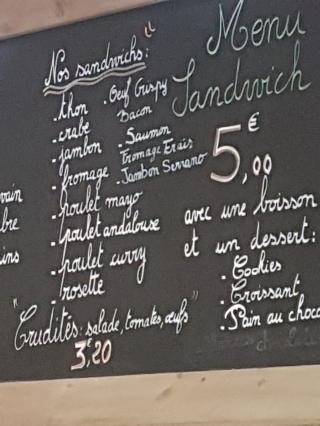 Nos sandwichs:
. thon
. crabe
. jambon
. fromage
. poulet mayo
. poulet andalouse
. poulet curry
. rosette
. Oeuf Crispy
Bacon
. Saumon
Fromage Frais
. Jambon Serrano
"Crudités: salade, tomates, œufs"
3€,20
Menu
Sandwich
5€,00
avec une boisson
et un dessert:
. Cookies
. Croissant
. Pain au choco
bre
ins